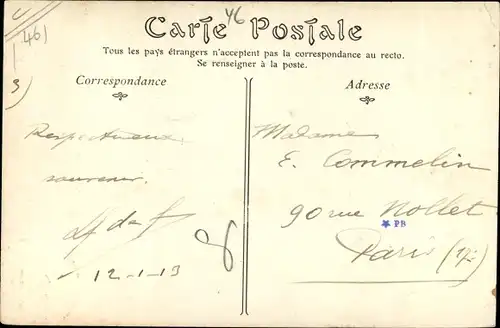 46
46
3
Carte Postale
Tous les pays étrangers n'acceptent pas la correspondance au recto.
Se renseigner à la poste.
Correspondance
Respectueux
souvenir.
12-1-13
8
Adresse
Madame
E. Commelin
90 rue Nollet
PB
Paris (17e)